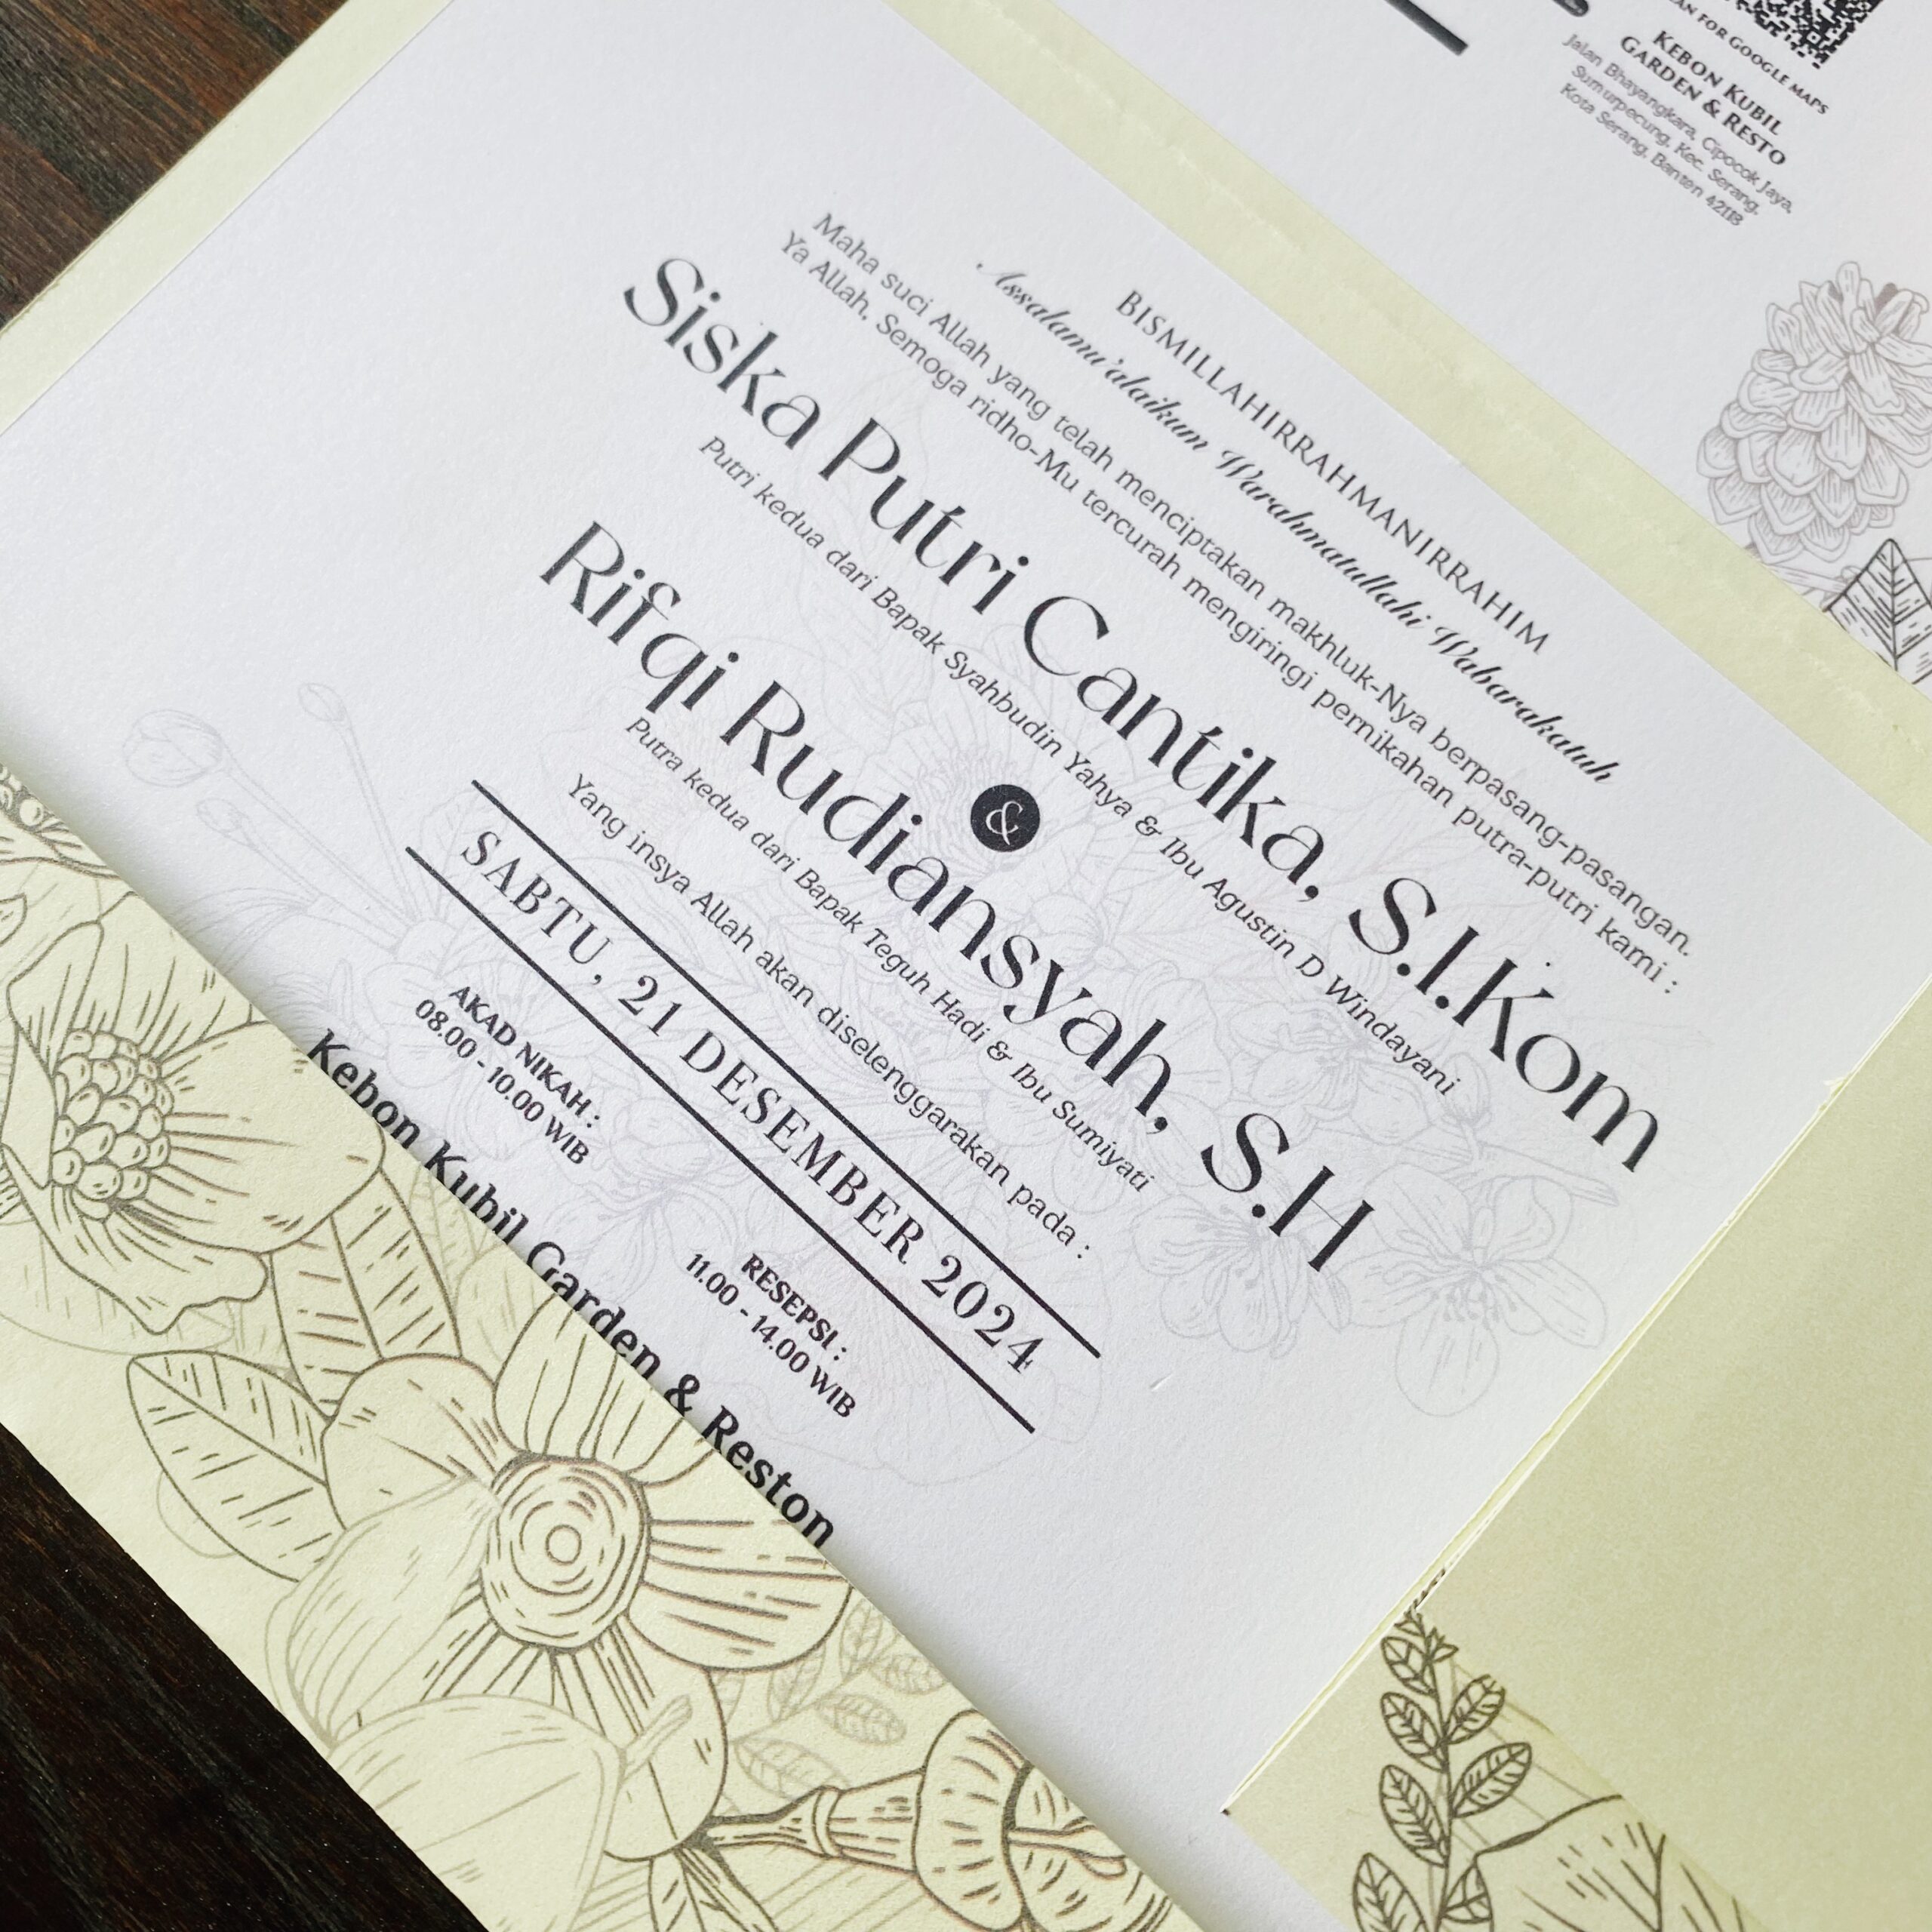 BISMILLAHIRRAHMANIRRAHIM
Assalamu'alaikum Warahmatullahi Wabarakatuh
Maha suci Allah yang telah menciptakan makhluk-Nya berpasang-pasangan.
Ya Allah, Semoga ridho-Mu tercurah mengiringi pernikahan putra-putri kami :
Siska Putri Cantika, S.I.Kom
Putri kedua dari Bapak Syahbudin Yahya & Ibu Agustin D Windayani
&
Rifqi Rudiansyah, S.H
Putra kedua dari Bapak Teguh Hadi & Ibu Sumiyati
Yang insya Allah akan diselenggarakan pada :
SABTU, 21 DESEMBER 2024
AKAD NIKAH :
08.00 - 10.00 WIB
RESEPSI :
11.00 - 14.00 WIB
Kebon Kubil Garden & Reston
FOR GOOGLE MAPS
KEBON KUBIL
GARDEN & RESTO
Jalan Bhayangkara, Cipocok Jaya,
Sumurpecung, Kec. Serang,
Kota Serang, Banten 42118